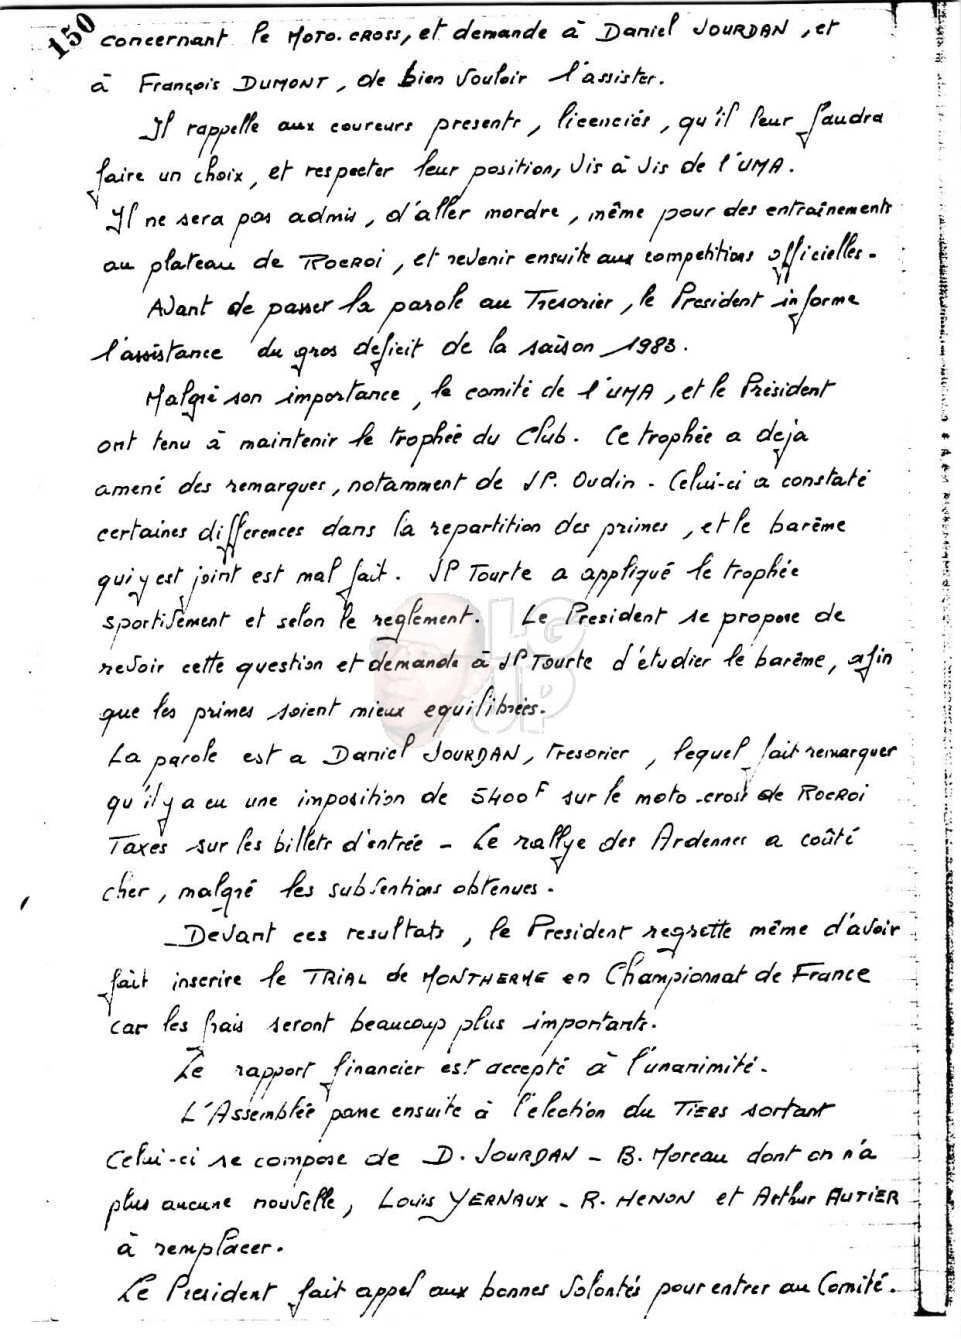 150
concernant le MOTO-CROSS, et demande à Daniel JOURDAN, et
à François DUMONT, de bien vouloir l'assister.
Il rappelle aux coureurs presents, licenciés, qu'il leur faudra
faire un choix, et respecter leur position, vis à vis de l'UMA.
Il ne sera pas admis, d'aller mordre, même pour des entraînements
au plateau de ROCROI, et revenir ensuite aux competitions officielles.
Avant de passer la parole au Tresorier, le President informe
l'assistance du gros deficit de la saison 1983.
Malgré son importance, le comité de l'UMA, et le Président
ont tenu à maintenir le trophée du Club. Ce trophée a deja
amené des remarques, notamment de JP. Oudin - Celui-ci a constaté
certaines differences dans la repartition des primes, et le barême
qui y est joint est mal fait. JP Tourte a appliqué le trophée
sportivement et selon le reglement. Le President se propose de
revoir cette question et demande à JP Tourte d'étudier le barême, afin
que les primes soient mieux equilibrées.
LG
UP
La parole est a Daniel JOURDAN, tresorier, lequel fait remarquer
qu'il y a eu une imposition de 5400F sur le moto-cross de ROCROI
Taxes sur les billets d'entrée - Le rallye des Ardennes a coûté
cher, malgré les subventions obtenues.
Devant ces resultats, le President regrette même d'avoir
fait inscrire le TRIAL de MONTHERME en Championnat de France
car les frais seront beaucoup plus importants.
Le rapport financier est accepté à l'unanimité.
L'Assemblée passe ensuite à l'election du TIERS sortant
Celui-ci se compose de D. JOURDAN - B. Moreau dont on n'a
plus aucune nouvelle, Louis YERNAUX - R. HENON et Arthur AUTIER
à remplacer.
Le President fait appel aux bonnes volontés pour entrer au Comité.